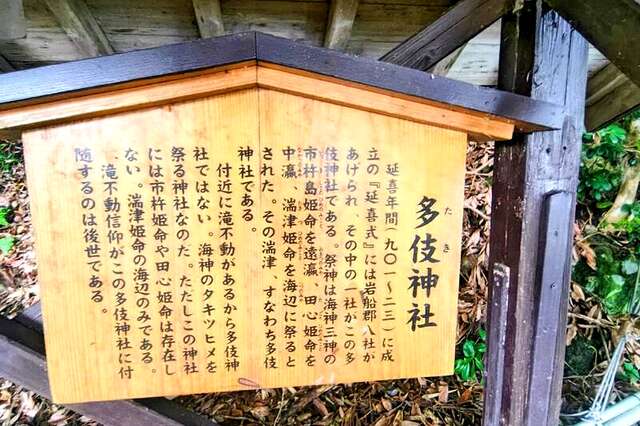 多伎神社
たき
延喜年間(九〇一〜二三)に成
立の『延喜式』には岩船郡八社が
あげられ、その中の一社がこの多
伎神社である。祭神は海神三神の
市杵島姫命を遠瀛、田心姫命を
中瀛、湍津姫命を海辺に祭ると
された。その湍津、すなわち多伎
神社である。
付近に滝不動があるから多伎神
社ではない。海神のタキツヒメを
祭る神社なのだ。ただしこの神社
には市杵姫命や田心姫命は存在し
ない。湍津姫命の海辺のみである。
滝不動信仰がこの多伎神社に付
随するのは後世である。